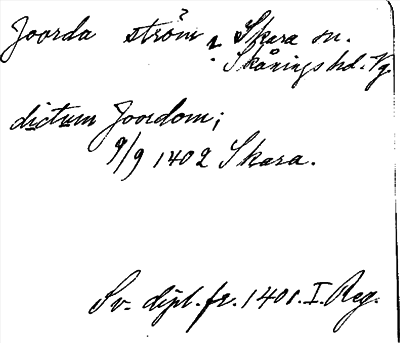 Joorda ström ? Skara sn.
Skånings hd. Vg.
dictum Joordom;
9/9 1402 Skara.
Sv. dipl. fr. 1401. I. Reg.